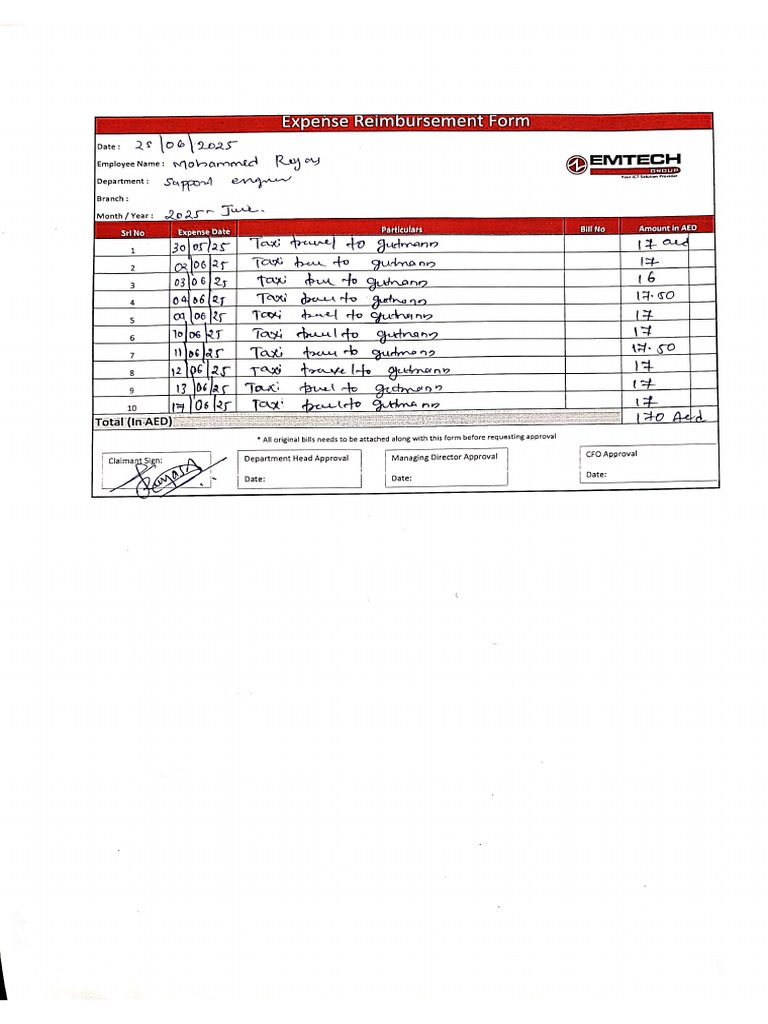 Expense Reimbursement Form
Date : 25/06/2025
Employee Name : Mohammed Reyas
EMTECH
GROUP
Your ICT Solution Provider
Department : Support
Branch :
Month / Year : 2025 - June.
Srl No Expense Date Particulars Bill No Amount in AED
1 30/05/25 Taxi travel to gutmann 17 aed
2 02/06/25 Taxi to gutmann 17
3 03/06/25 Taxi to gutmann 16
4 04/06/25 Taxi to gutmann 17.50
5 09/06/25 Taxi to gutmann 17
6 10/06/25 Taxi to gutmann 17
7 11/06/25 Taxi to gutmann 17.50
8 12/06/25 Taxi travel to gutmann 17
9 13/06/25 Taxi to gutmann 17
10 17/06/25 Taxi to gutmann 17
Total (In AED) 170 Aed
* All original bills needs to be attached along with this form before requesting approval
Claimant Sign: Department Head Approval Managing Director Approval CFO Approval
Date: Date: Date: